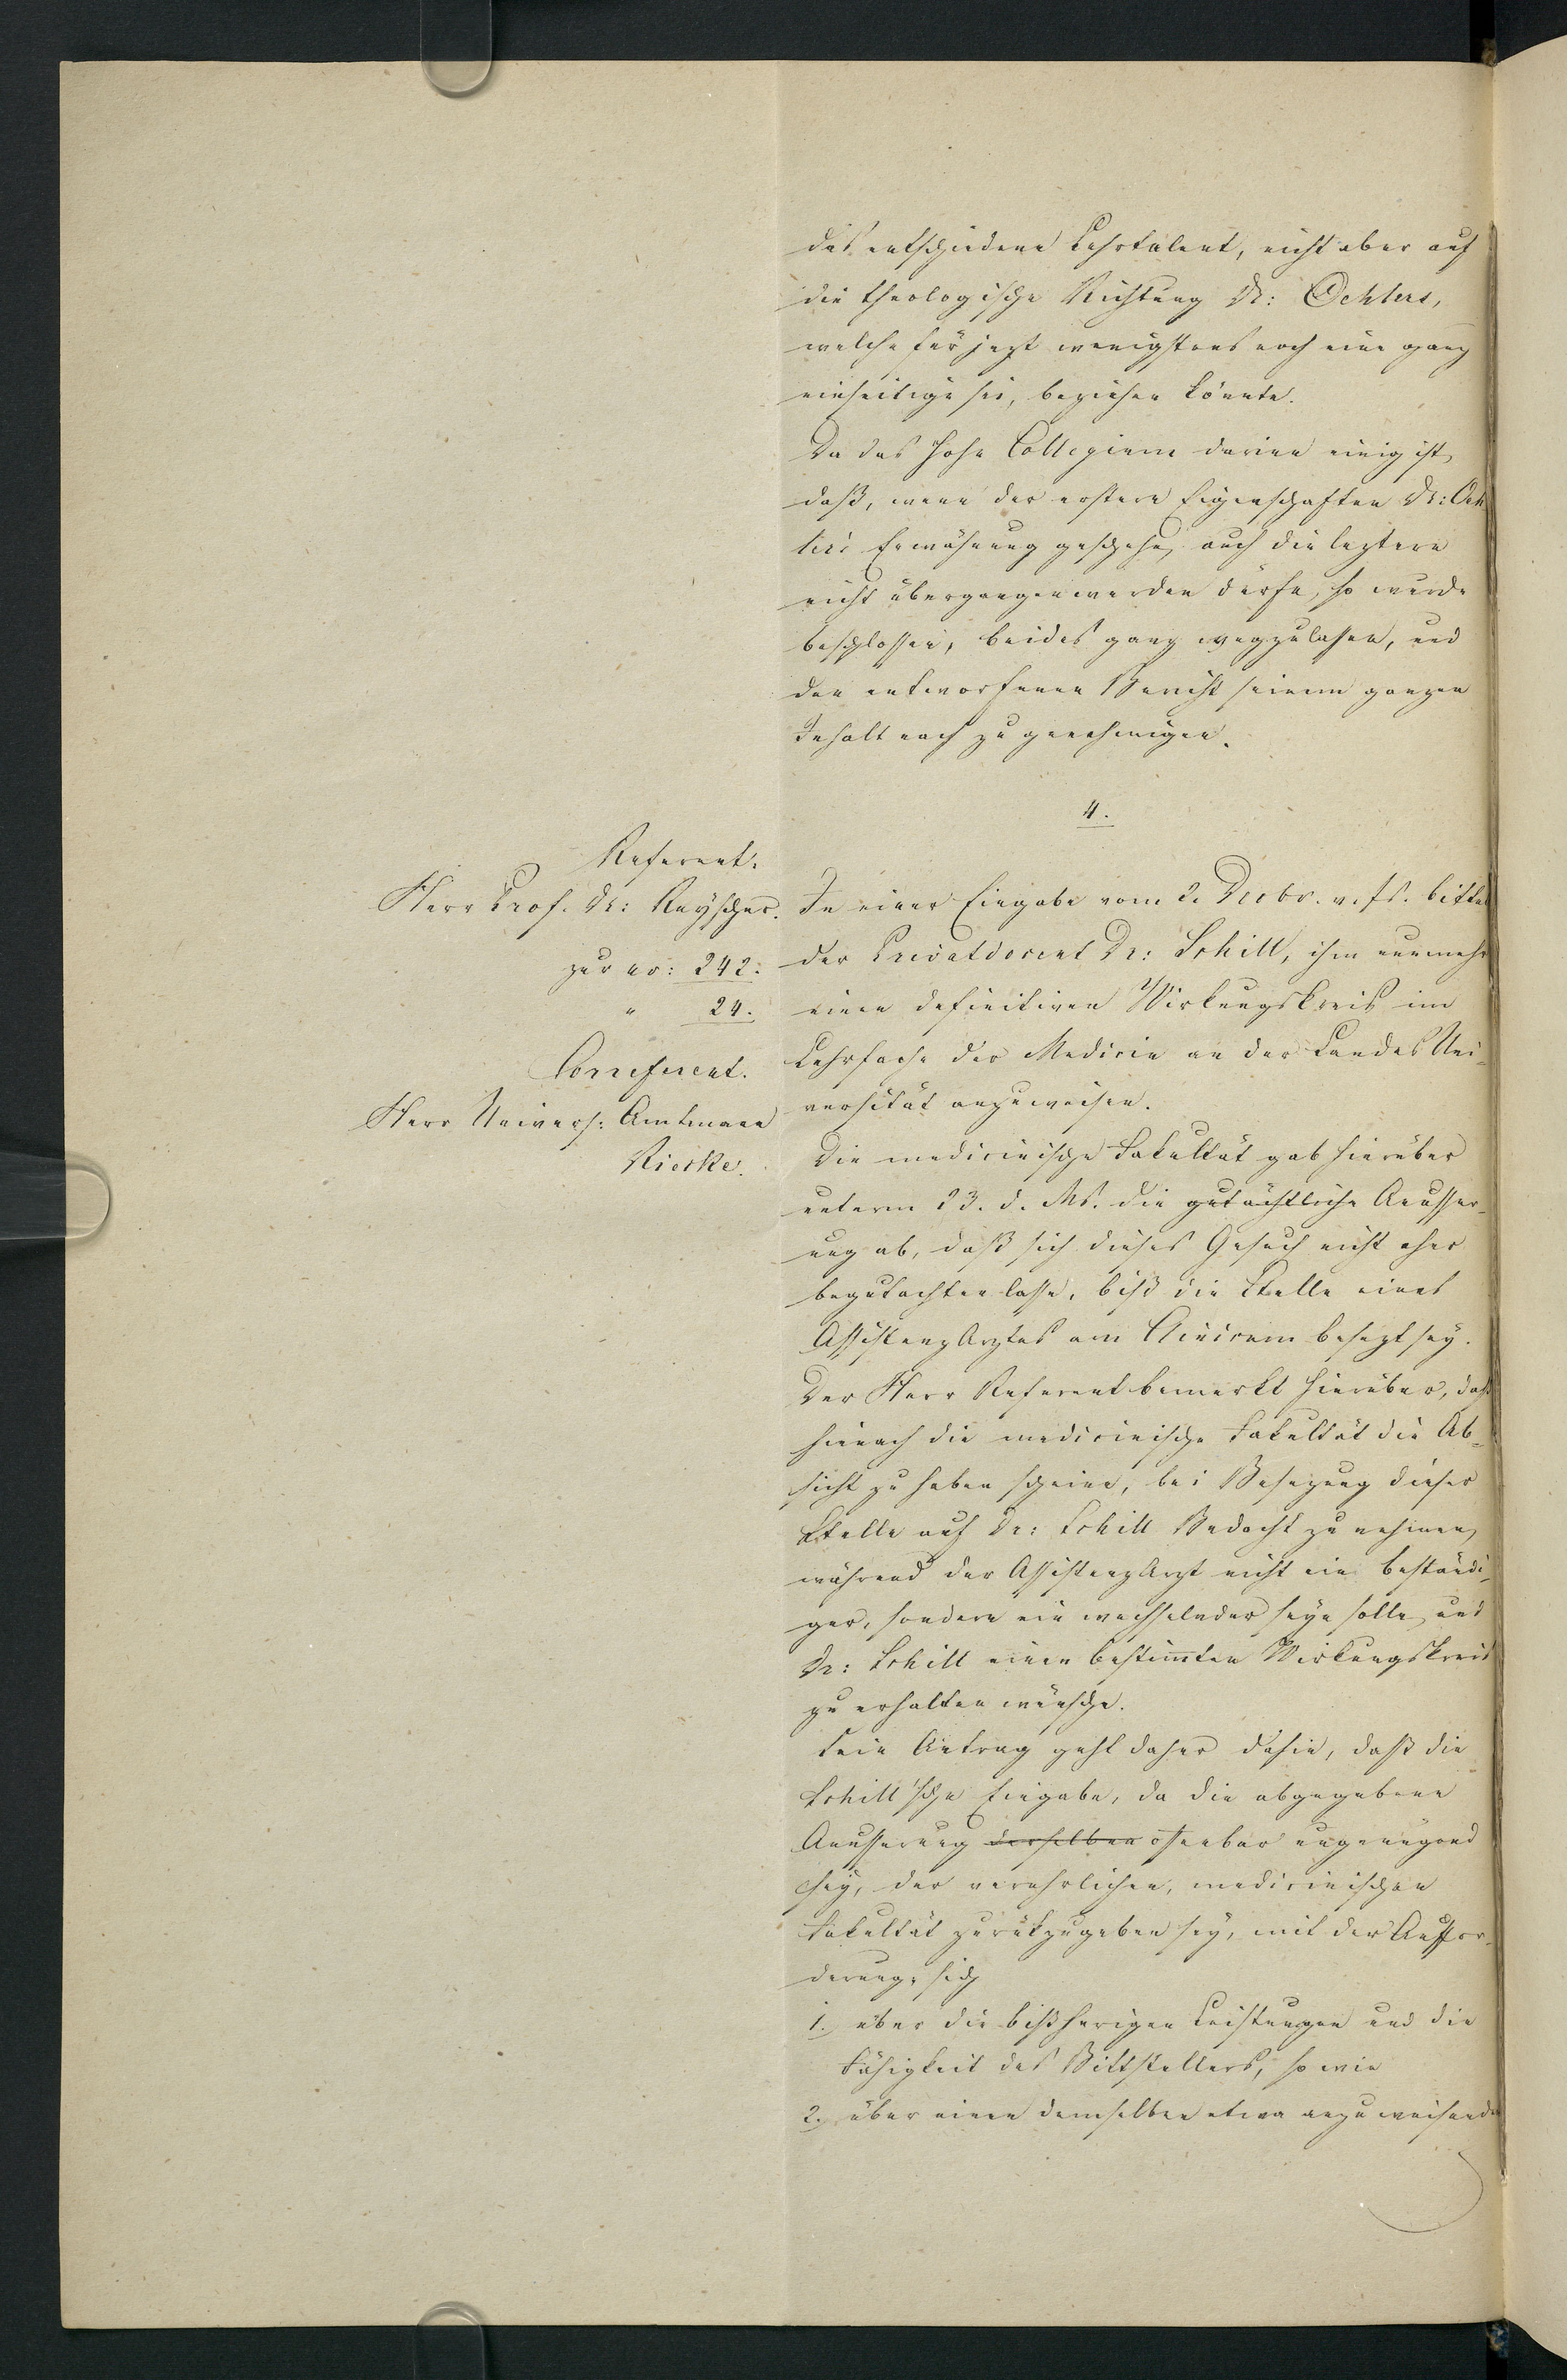 das entschiedene Lehrtalent, nicht aber auf
die theologische Richtung Dr: Oehlers,
welche für jezt wenigstens noch eine ganz
einseitige sei, beziehen könnte.
Da das hohe Collegium darinn einig ist,
daß, wenn der erstern Eigenschaften Dr: Oeh
lers Erwähnung geschehe, auch die leztere
nicht übergangen werden dürfe, so wurde
beschlossen, beides ganz wegzulassen, und
den entworfenen Bericht seinem ganzen
Inhalt nach zu genehmigen.
4.
Referent.
Herr Prof. Dr: Reyscher.
zur nr: 242.
" 24.
Correferent.
Herr Univers: Amtmann
Riecke.
In einer Eingabe vom 2. Decbr. v. Js. bittet
der Privatdocent Dr: Schill, ihm nunmehr
einen definitiven Wirkungskreis im
Lehrfache der Medicin an der Landes Uni-
versität anzuweisen.
Die medicinische Fakultät gab hierüber
unterm 23. d. Ms. die gutächtliche Aeusser-
ung ab, daß sich dieses Gesuch nicht eher
begutachten lasse, biß die Stelle eines
Assistenz Arztes am Clinicum besezt sey.
Der Herr Referent bemerkt hierüber, daß
hienach die medicinische Fakultät die Ab-
sicht zu haben scheine, bei Besezung dieser
Stelle auf Dr: Schill Bedacht zu nehmen,
während der Assistenz Arzt nicht ein beständi-
ger, sondern ein wechselnder seyn solle, und
Dr: Schill einen bestimmten Wirkungskreis
zu erhalten wünsche.
Sein Antrag geht daher dahin, daß die
Schill'sche Eingabe, da die abgegebene
Aeusserung derselben offenbar ungenügend
sey, der verehrlichen, medicinischen
Fakultät zurückzugeben sey, mit der Auffor-
derung, sich
1. über die bißherigen Leistungen und die
Fähigkeit des Bittstellers, so wie
2. über einen demselben etwa anzuweisenden